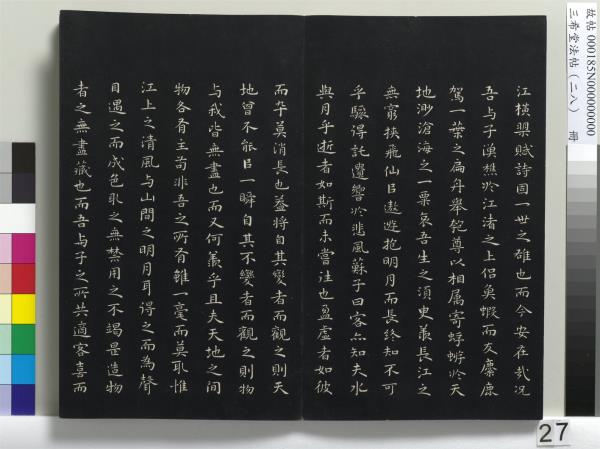 江橫槊賦詩固一世之雄也而今安在哉況
吾與子漁樵於江渚之上侶魚蝦而友麋鹿
駕一葉之扁舟舉匏尊以相属寄蜉蝣於天
地渺滄海之一粟哀吾生之須臾羨長江之
無窮挾飛仙㠯遨遊抱明月而長終知不可
乎驟得託遺響於悲風蘇子曰客亦知夫水
與月乎逝者如斯而未嘗往也盈虛者如彼
而卒莫消長也葢將自其變者而觀之則天
地曾不能㠯一瞬自其不變者而觀之則物
与我皆無盡也而又何羨乎且夫天地之間
物各有主苟非吾之所有雖一毫而莫取惟
江上之清風与山間之明月耳得之而為聲
目遇之而成色取之無禁用之不竭是造物
者之無盡藏也而吾与子之所共適客喜而
故帖 000185N000000000
三希堂法帖(二八) 冊
27